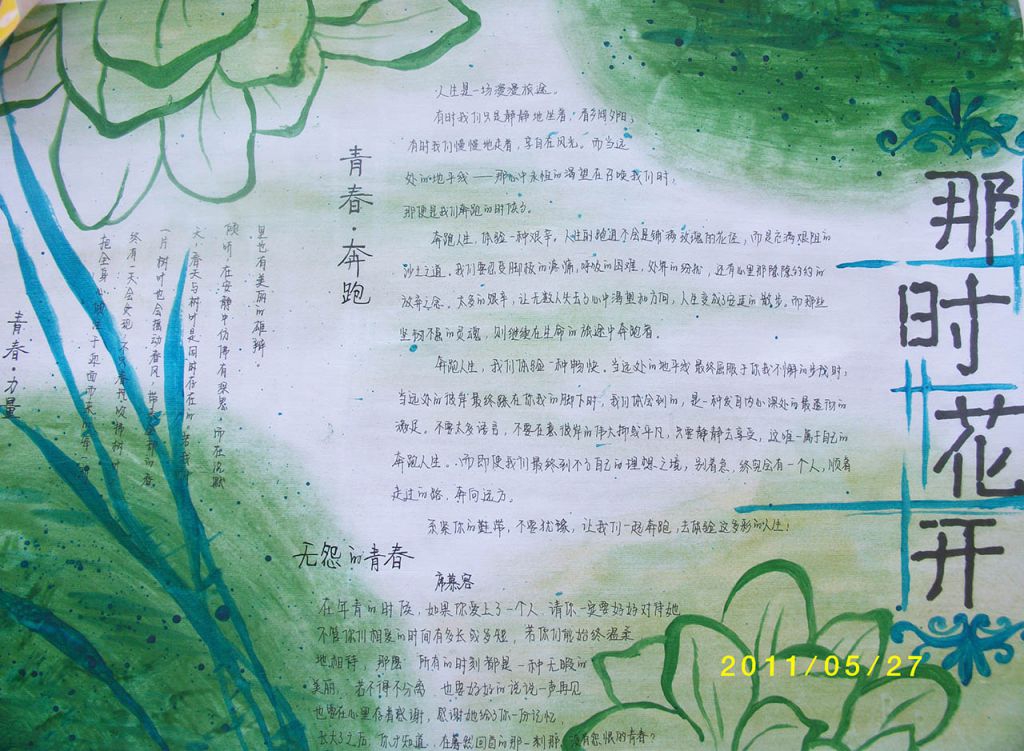 那时花开
青春·奔跑
人生是一场漫漫旅途。
有时我们只是静静地坐着,看夕阳;
有时我们慢慢地走着,享自在风光。而当远
处的地平线——那心中永恒的渴望在召唤我们时,
那便是我们奔跑的时候了。
奔跑人生,体验一种艰辛。人生的跑道不会是铺满玫瑰的花径,而是充满艰阻的
沙土之道,我们要忍受脚板的疼痛,呼吸的困难,外界的纷扰,还有心里那隐隐约约的
放弃之念。太多的艰辛,让无数人失去了心中渴望和方向,人生变成了安逸的散步,而那些
坚韧不屈的灵魂,则继续在生命的旅途中奔跑着。
奔跑人生,我们体验一种畅快。当远处的地平线最终屈服于你我不懈的步伐时,
当远处的彼岸最终踩在你我的脚下时,我们体会到的,是一种发自内心深处的最强烈的
满足。不要太多语言,不要在意彼岸的伟大抑或平凡,只要静静去享受,这唯一属于自己的
奔跑人生。而即使我们最终到不了自己的理想之境,别着急,终究会有一个人,顺着
走过的路,奔向远方。
系紧你的鞋带,不要犹豫,让我们一起奔跑,去体验这多彩的人生!
青春·力量
里也有美丽的雄辩。
倾听,在安静中仿佛有思想,而在沉默
天,春天与树叶是同时存在的
一片树叶也会摇动春风,带
终有一天会发现,不
无怨的青春
席慕容
在年青的时候,如果你爱上了一个人,请你一定要好好对待她
不管你们相爱的时间有多长或多短,若你们能始终温柔
地相待,那麽 所有的时刻都是一种无暇的
美丽,若不得不分离,也要好好的说说一声再见
也要在心里存着感谢,感谢她给了你一份记忆,
长大了之后,你才知道,在蓦然回首的那一刹那,没有怨恨的青春?
2011/05/27